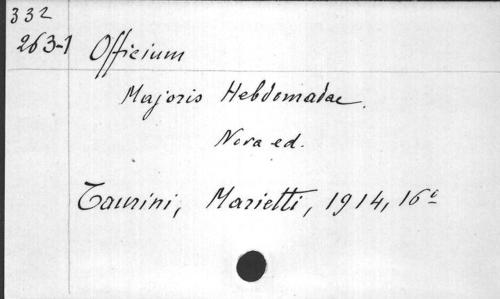 332
263-1
Officium
Majoris Hebdomadae.
Nova ed.
Taurini, Marietti, 1914, 16º